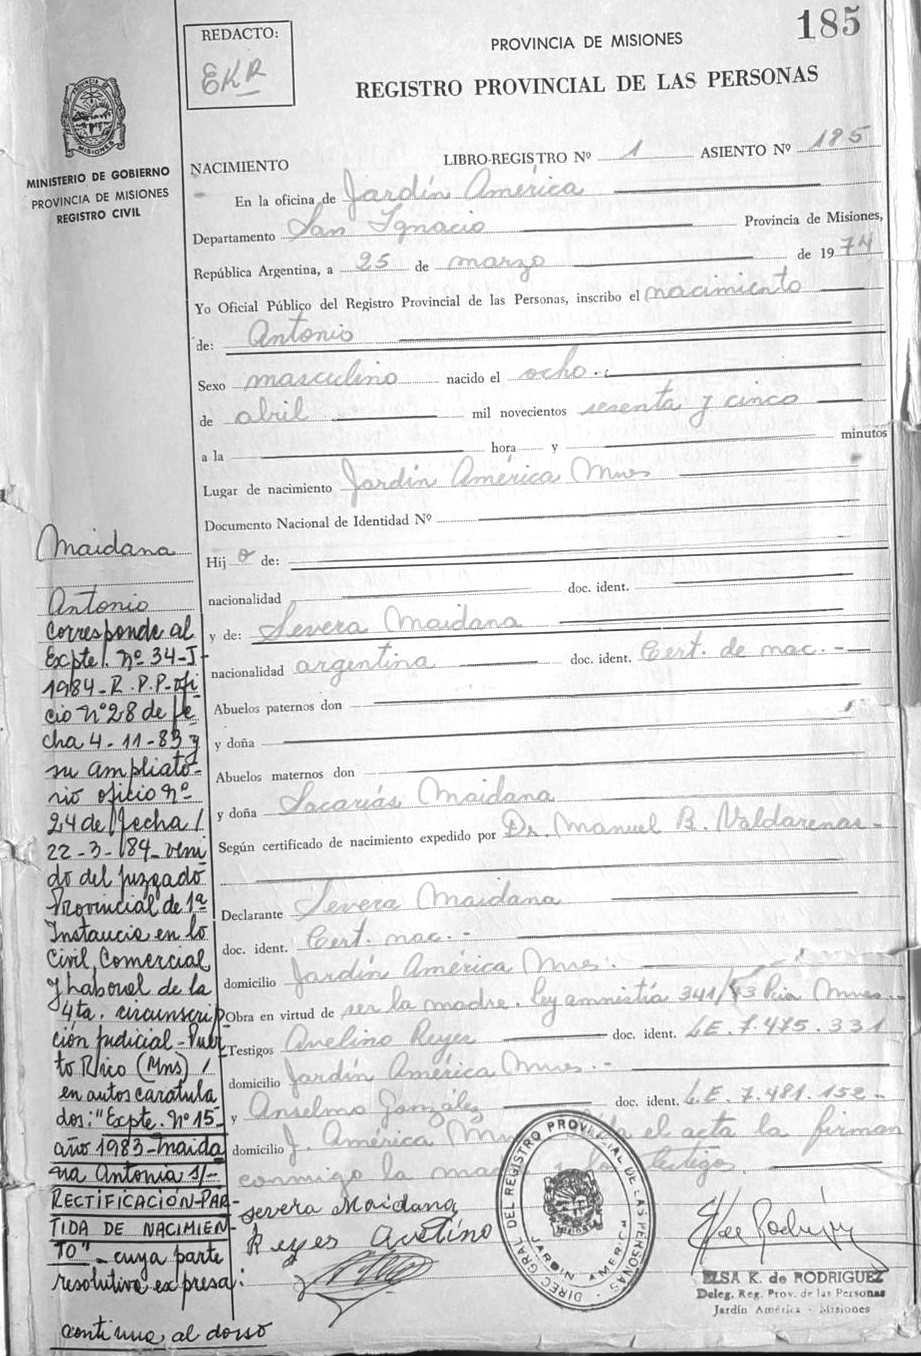 185
REDACTO:
EKR
PROVINCIA DE MISIONES
REGISTRO PROVINCIAL DE LAS PERSONAS
MINISTERIO DE GOBIERNO
PROVINCIA DE MISIONES
REGISTRO CIVIL
NACIMIENTO LIBRO-REGISTRO Nº 1 ASIENTO Nº 185
En la oficina de Jardín América
Departamento San Ignacio Provincia de Misiones,
República Argentina, a 25 de marzo de 1974
Yo Oficial Público del Registro Provincial de las Personas, inscribo el nacimiento
de: Antonio
Sexo masculino nacido el ocho.-
de abril mil novecientos sesenta y cinco
a la hora y minutos
Lugar de nacimiento Jardín América Mnes
Documento Nacional de Identidad Nº
Hij o de:
nacionalidad doc. ident.
y de: Severa Maidana
nacionalidad argentina doc. ident. Cert. de nac.-
Abuelos paternos don
y doña
Abuelos maternos don
y doña Sacarías Maidana
Según certificado de nacimiento expedido por Dr. Manuel B. Valdarenas-
Declarante Severa Maidana
doc. ident. Cert. nac.-
domicilio Jardín América Mnes.
Obra en virtud de ser la madre. Ley amnistía 341/73 Pcia Mnes.-
Testigos Avelino Reyes doc. ident. L.E. 7.475.331
domicilio Jardín América Mnes.-
y Anselmo González doc. ident. L.E. 7.481.152-
domicilio J. América el acta la firman
conmigo la testigos.
severa Maidana
Reyes Avelino
DIREC. GRAL. DEL REGISTRO PROVINCIAL DE LAS PERSONAS
JARDIN AMERICA
ELSA K. de RODRIGUEZ
Deleg. Reg. Prov. de las Personas
Jardín América - Misiones
Maidana
Antonio
Corresponde al
Expte. nº 34-J-
1984-R.P.P-Ofi
cio nº28 de fe
cha 4-11-83 y
su ampliato-
rio oficio nº
24 de fecha/
22-3-84-veni
do del juzgado
Provincial de 1ª
Instancia en lo
Civil, Comercial
y laboral de la
4ta. circunscrip
ción judicial-Puer
to Rico (Mns)/
en autos caratula
dos: "Expte. nº 15-
año 1983-Maida
na Antonia s/-
RECTIFICACIÓN-PAR-
TIDA DE NACIMIEN-
TO"-cuya parte
resolutiva expresa:
continua al dorso